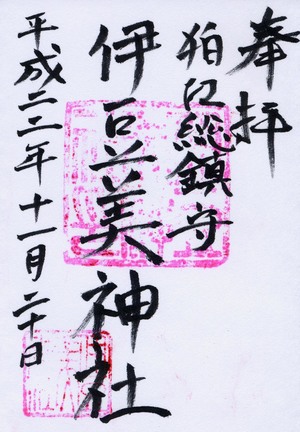 奉拝
狛江総鎮守
伊豆美神社
平成二二年十一月二十日